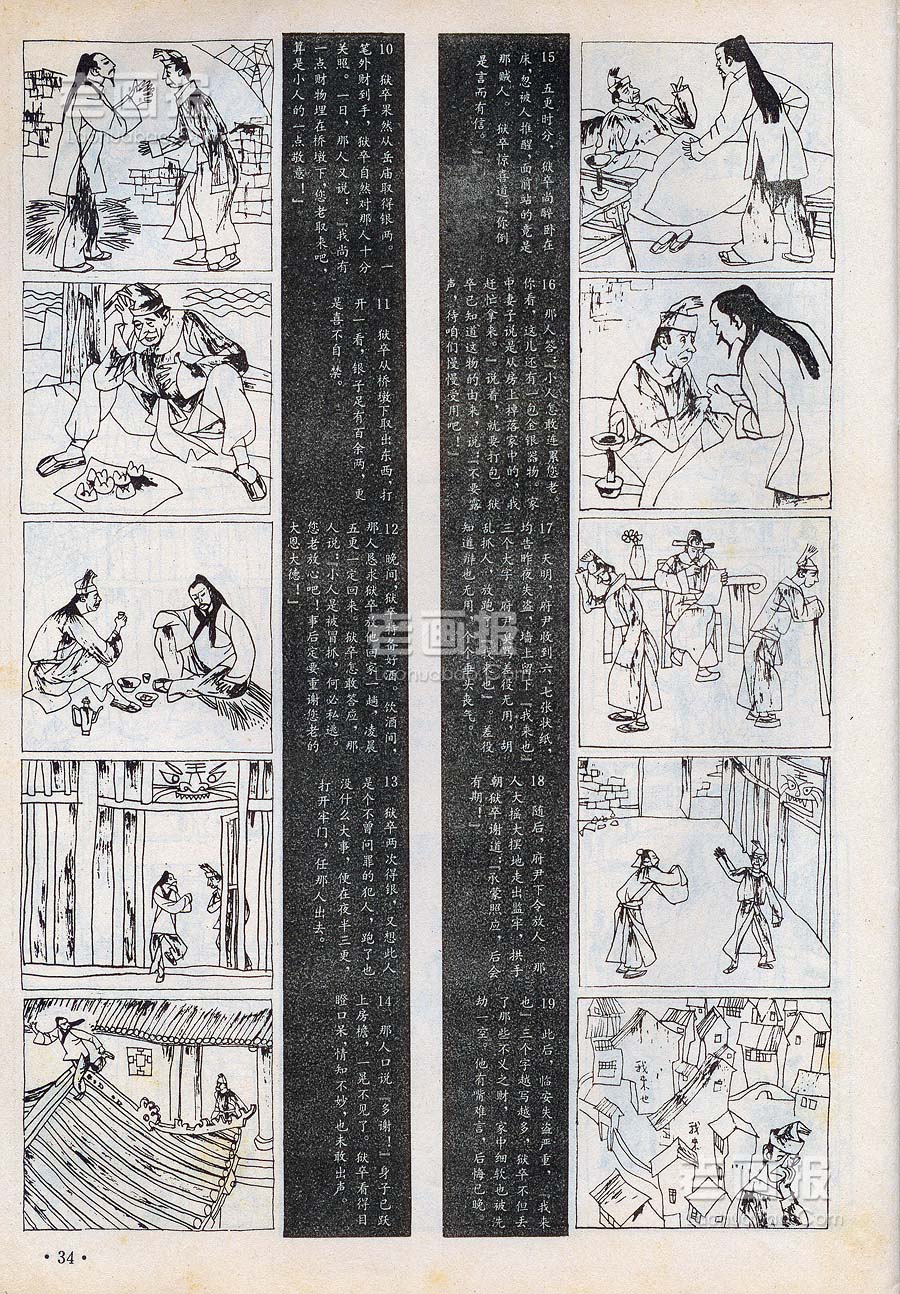 10 狱卒果然从岳庙取得银两。一
笔外财到手，狱卒自然对那人十分
关照。一日，那人又说：『我尚有
一点财物埋在桥墩下，您老取来吧，
算是小人的一点敬意！』
11 狱卒从桥墩下取出东西，打
开一看，银子足有百余两，更
是喜不自禁。
12 晚间，狱卒
好酒。饮酒间，
那人恳求狱卒放他回家一趟，凌晨
五更一定回来。狱卒怎敢答应，那
人说：『小人是被冒抓，何必私逃。
您老放心吧！事后定要重谢您老的
大恩大德！』
13 狱卒两次得银，又想此人
是个不曾问罪的犯人，跑了也
没什么大事，便在夜半三更，
打开牢门，任那人出去。
14 那人口说『多谢！』身子已跃
上房檐，一晃不见了。狱卒看得目
瞪口呆，情知不妙，也未敢出声
15 五更时分，狱卒尚醉卧在
床，忽被人推醒，面前站的竟是
那贼人。狱卒惊喜道：『你倒
是言而有信。』
16 那人答：『小人怎敢连累您老。
你看，这儿还有一包金银器物。家
中妻子说是从房上掉落家中的，我
赶忙拿来。』说着，就要打包。狱
卒已知道这物的由来，说：『不要露
声，待咱们慢慢受用吧！』
17 天明，府尹收到六、七张状纸，
均告昨夜失盗，墙上留下『我来也』
三个大字。府尹
差役无用，胡
乱抓人，放跑
来也』。差役
知道辩也无用，个个垂头丧气。
18 随后，府尹下令放人，那
人大摇大摆地走出监牢，拱手
朝狱卒谢道：『承蒙照应，后会
有期！』
19 此后，临安失盗严重，『我来
也』三个字越写越多，狱卒不但丢
了那些不义之财，家中细软也被洗
劫一空。他有嘴难言，后悔已晚。
我来也
我来
·34·
老画报
laohuabao.com